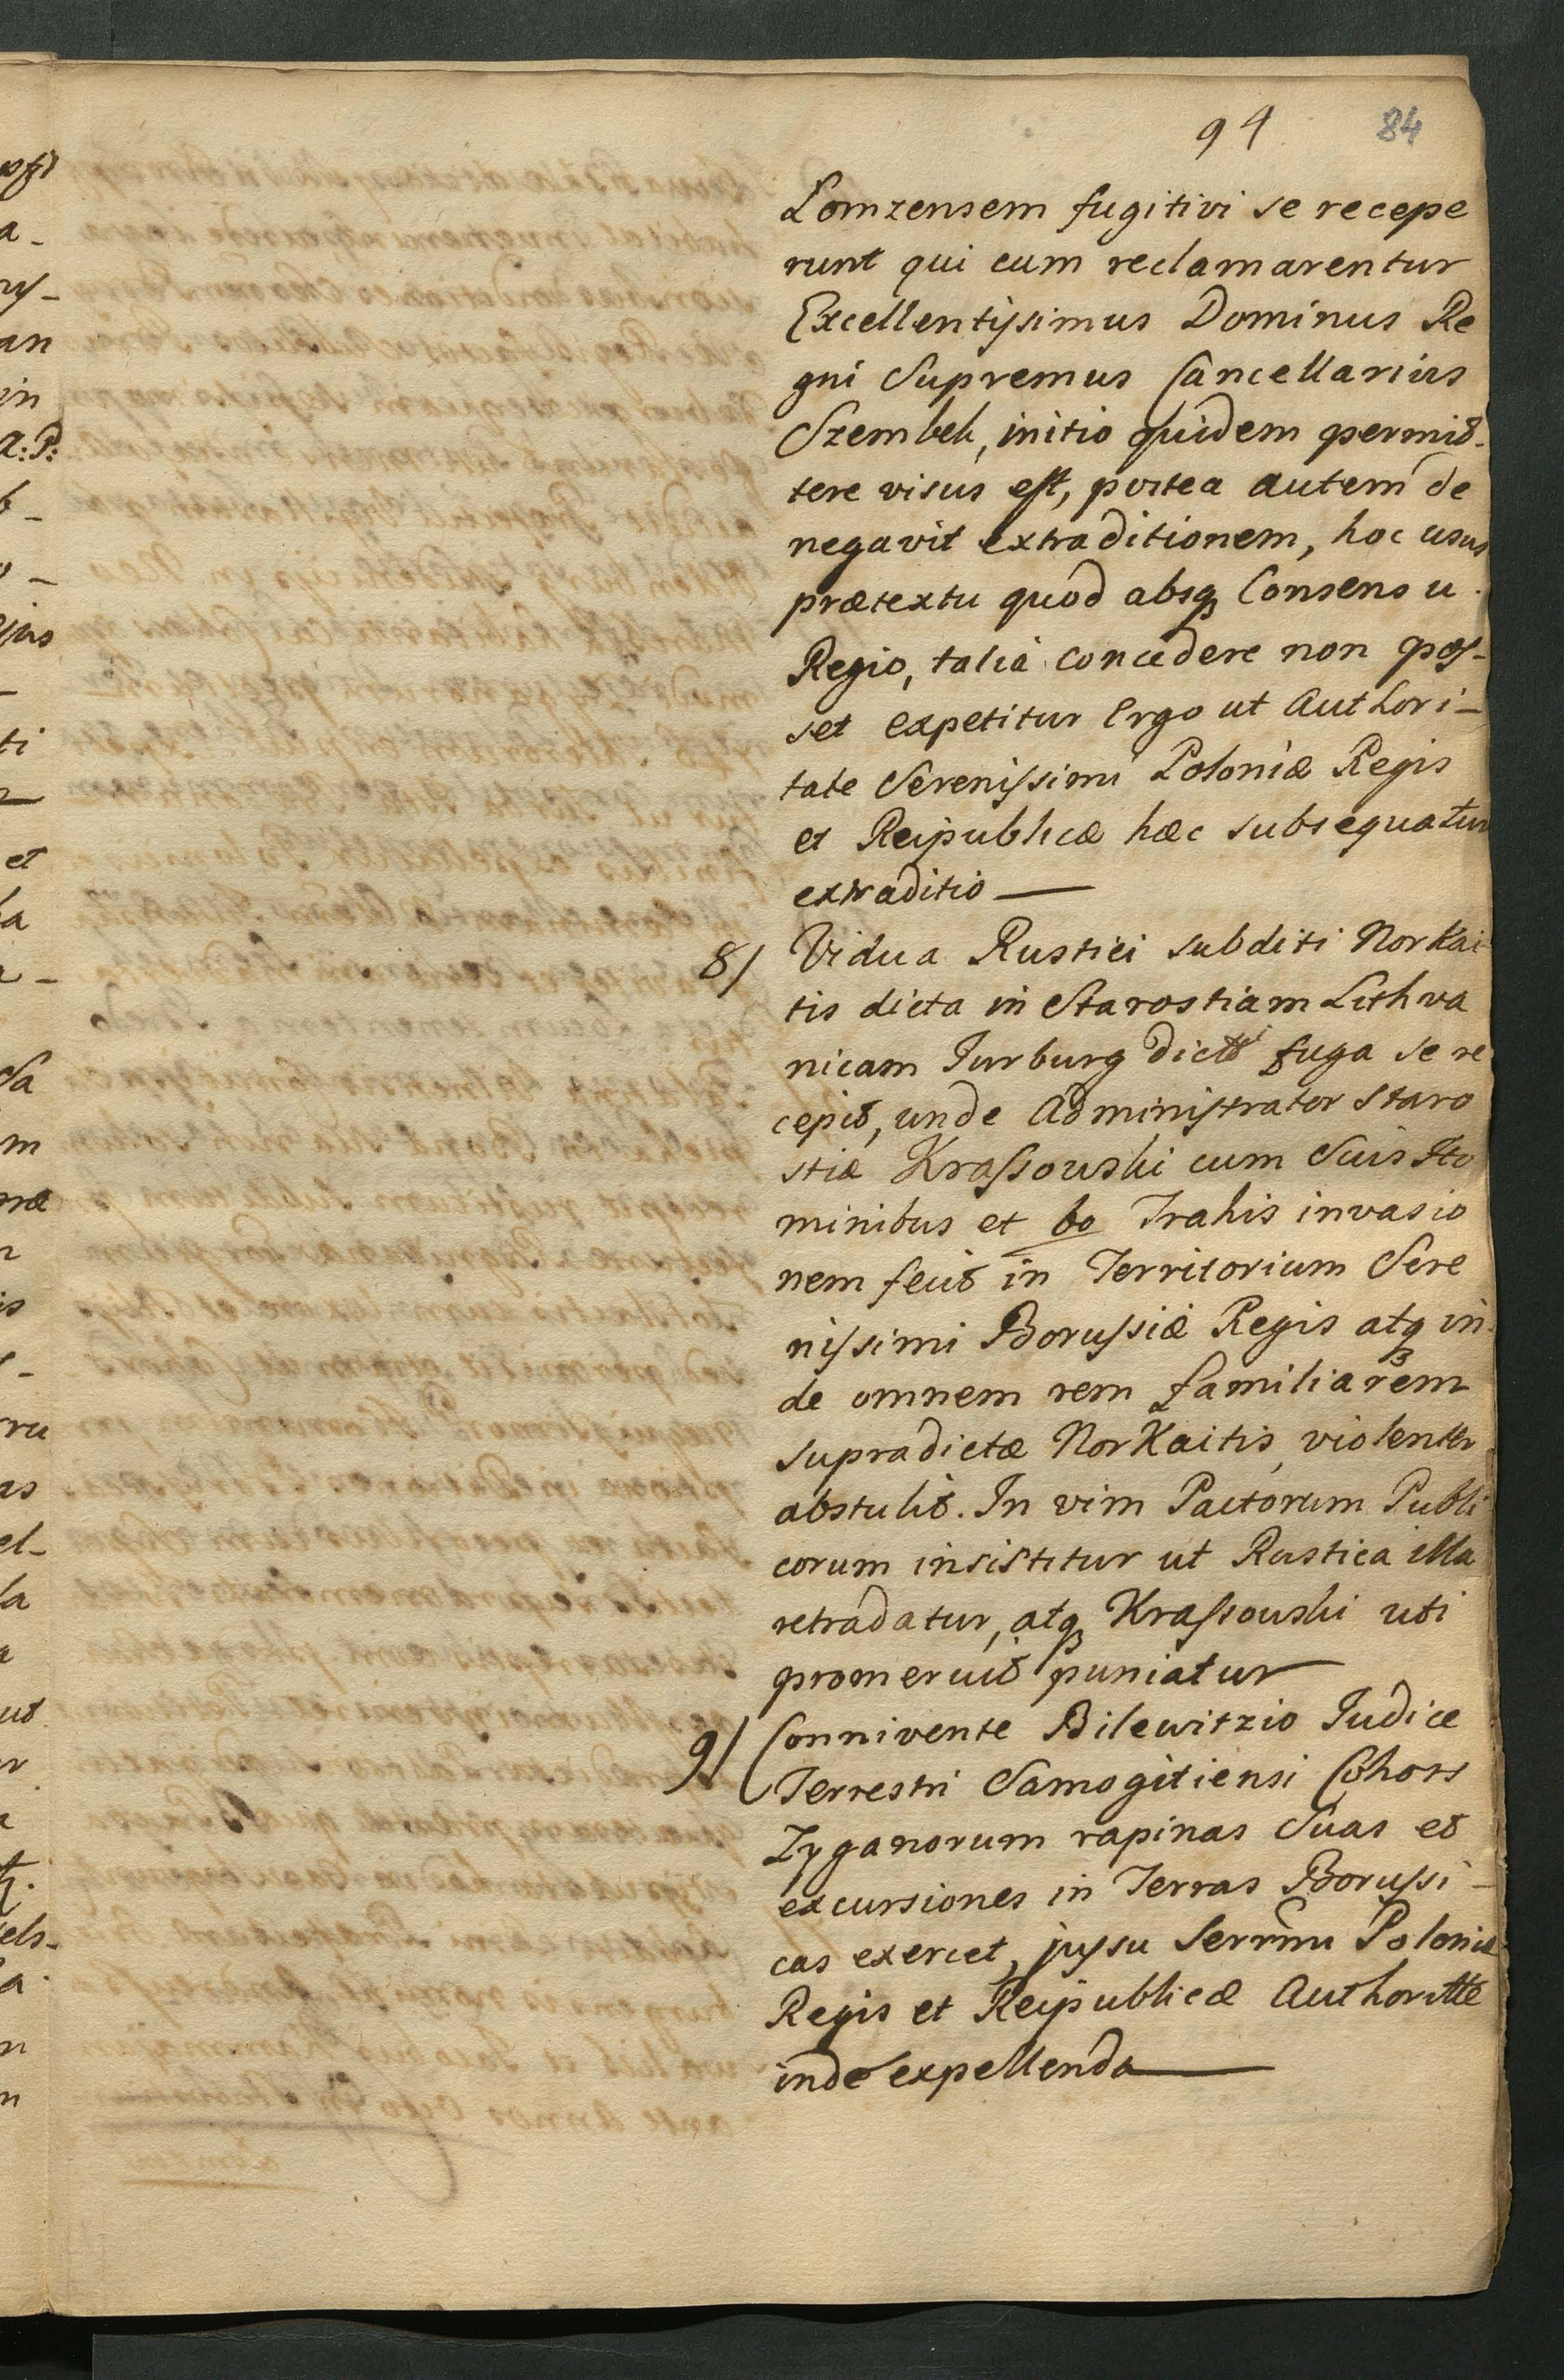 94 84
Lomzensem fugitivi se recepe
runt qui cum reclamarentur
Excellentissimus Dominus Re
gni Supremus Cancellarius
Szembek, initio quidem permit-
tere visus est, postea autem de
negavit extraditionem, hoc usus
prætextu quod absq Consensu
Regio, talia concedere non pos-
set expetitur Ergo ut Authori-
tate Serenissimi Poloniæ Regis
et Reipublicæ hæc subsequatur
extraditio —
8/ Vidua Rustici subditi Norkai
tis dicta in Starostiam Lithva
nicam Jurburg fuga se re
cepit, unde Administrator Staro
stiæ Krassowski cum Suis Ho
minibus et 60 Trahis invasio
nem fecit in Territorium Sere
nissimi Borussiæ Regis atq in
de omnem rem familiarem
supradictæ Norkaitis, violenter
abstulit. In vim Pactorum Publi
corum insistitur ut Rustica illa
retradatur, atq Krassowski uti
promeruit puniatur —
9/ Connivente Bilewitzio Judice
Terrestri Samogitiensi Cohors
Zyganorum rapinas Suas et
excursiones in Terras Borussi-
cas exercet, jussu Serrmi Poloniæ
Regis et Reipublicæ Authoritte
inde expellenda —